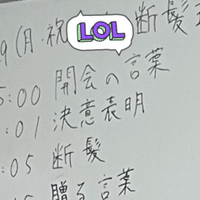 9(月・祝) LOL 断髪
5:00 開会の言葉
:01 決意表明
:05 断髪
贈る言葉